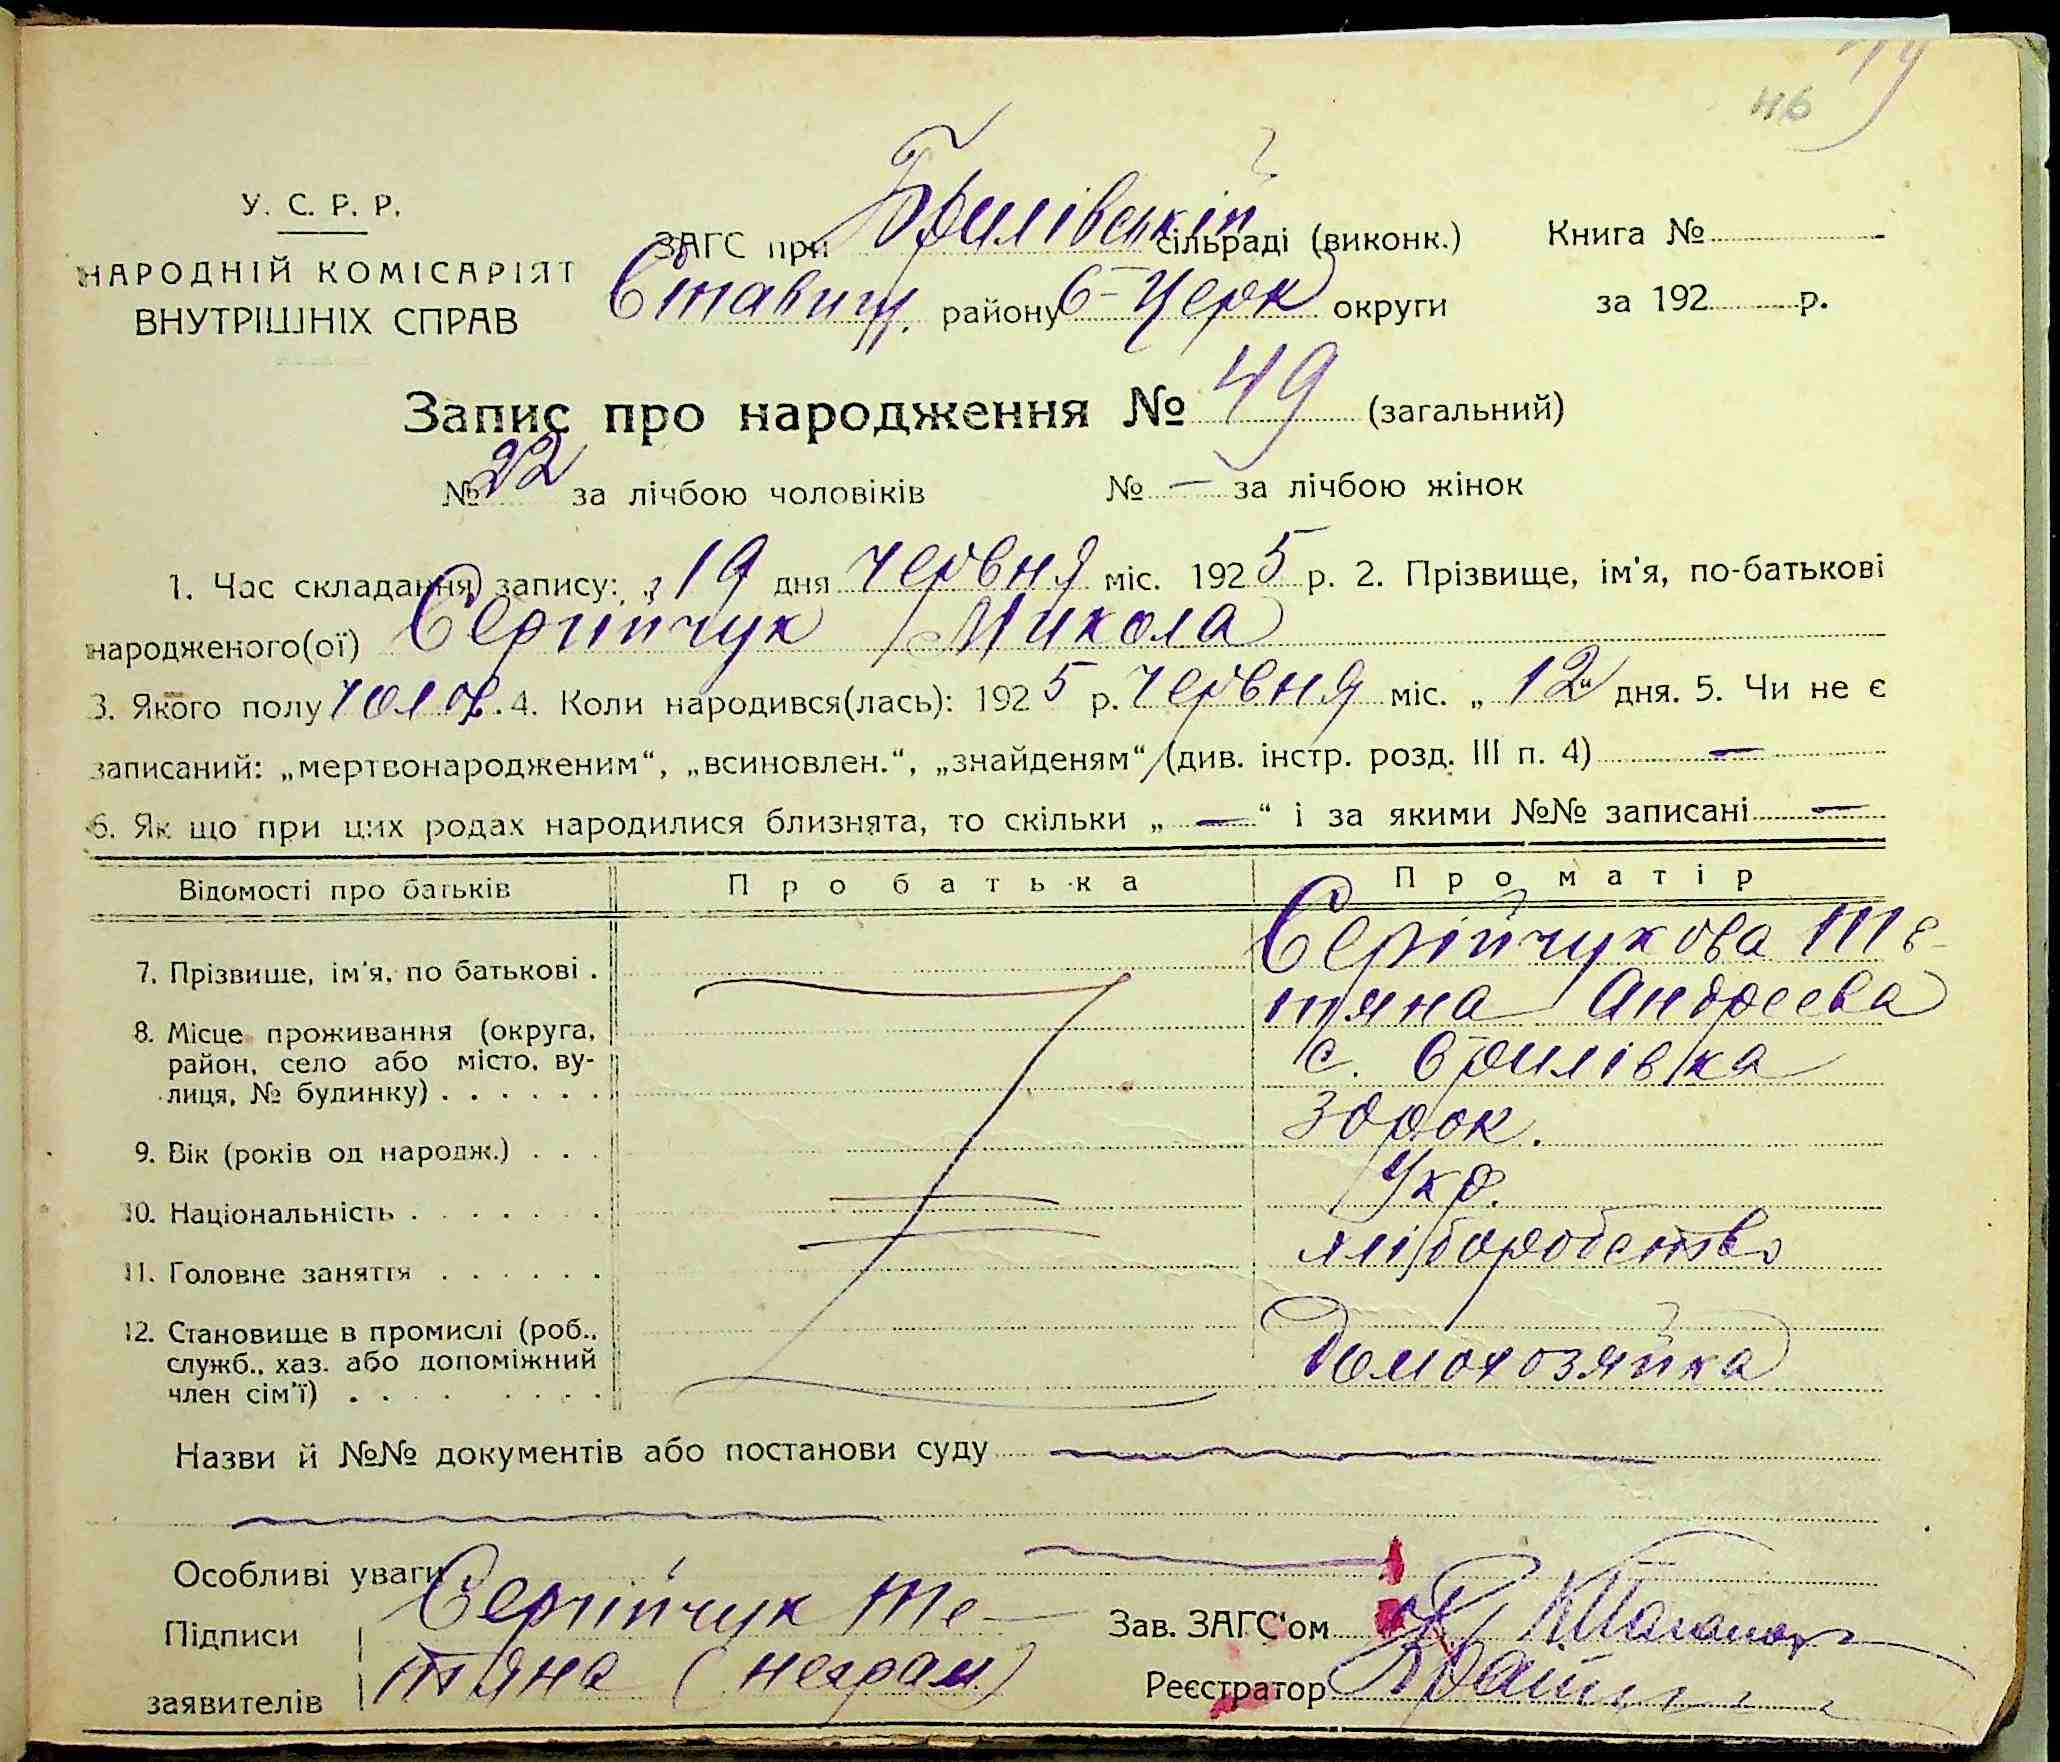 46
У. С. Р. Р.
НАРОДНІЙ КОМІСАРІЯТ
ВНУТРІШНІХ СПРАВ
ЗАГС при Брилівській сільраді (виконк.) Книга №
Ставищ. району Б-Церк округи за 192 р.
Запис про народження № 49 (загальний)
№ 22 за лічбою чоловіків № — за лічбою жінок
1. Час складання запису: „19 дня червня міс. 1925 р. 2. Прізвище, ім'я, по-батькові
народженого(ої) Серійчук Микола
3. Якого полу чолов. 4. Коли народився(лась): 1925 р. червня міс. „12“ дня. 5. Чи не є
записаний: „мертвонародженим“, „всиновлен.“, „знайденям“ (див. інстр. розд. III п. 4) —
6. Як що при цих родах народилися близнята, то скільки „—“ і за якими №№ записані —
Відомості про батьків Про батька Про матір
7. Прізвище, ім'я, по батькові . Серійчукова Те-
тяна Андреева
8. Місце проживання (округа,
район, село або місто, ву-
лиця, № будинку) . . . . . . с. Брилівка
9. Вік (років од народж.) . . . 30 рок.
10. Національність . . . . . . . Укр.
11. Головне заняття . . . . . . хліборобство
12. Становище в промислі (роб.,
служб., хаз. або допоміжний
член сім'ї) . . . . . . . . Домохозяйка
Назви й №№ документів або постанови суду
Особливі уваги
Підписи Серійчук Те-
заявителів тяна (неграм.)
Зав. ЗАГС'ом
Реєстратор